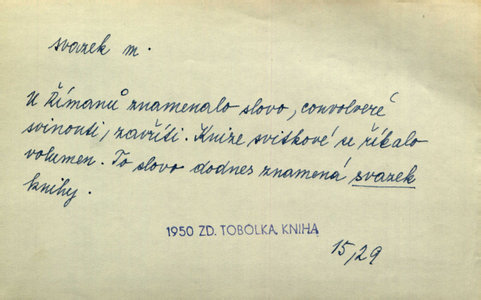 svazek m.
U Římanů znamenalo slovo, convolveré
svinouti, zavříti. Knize svitkové se říkalo
volumen. To slovo dodnes znamená svazek
knihy.
1950 ZD. TOBOLKA, KNIHA
15,29